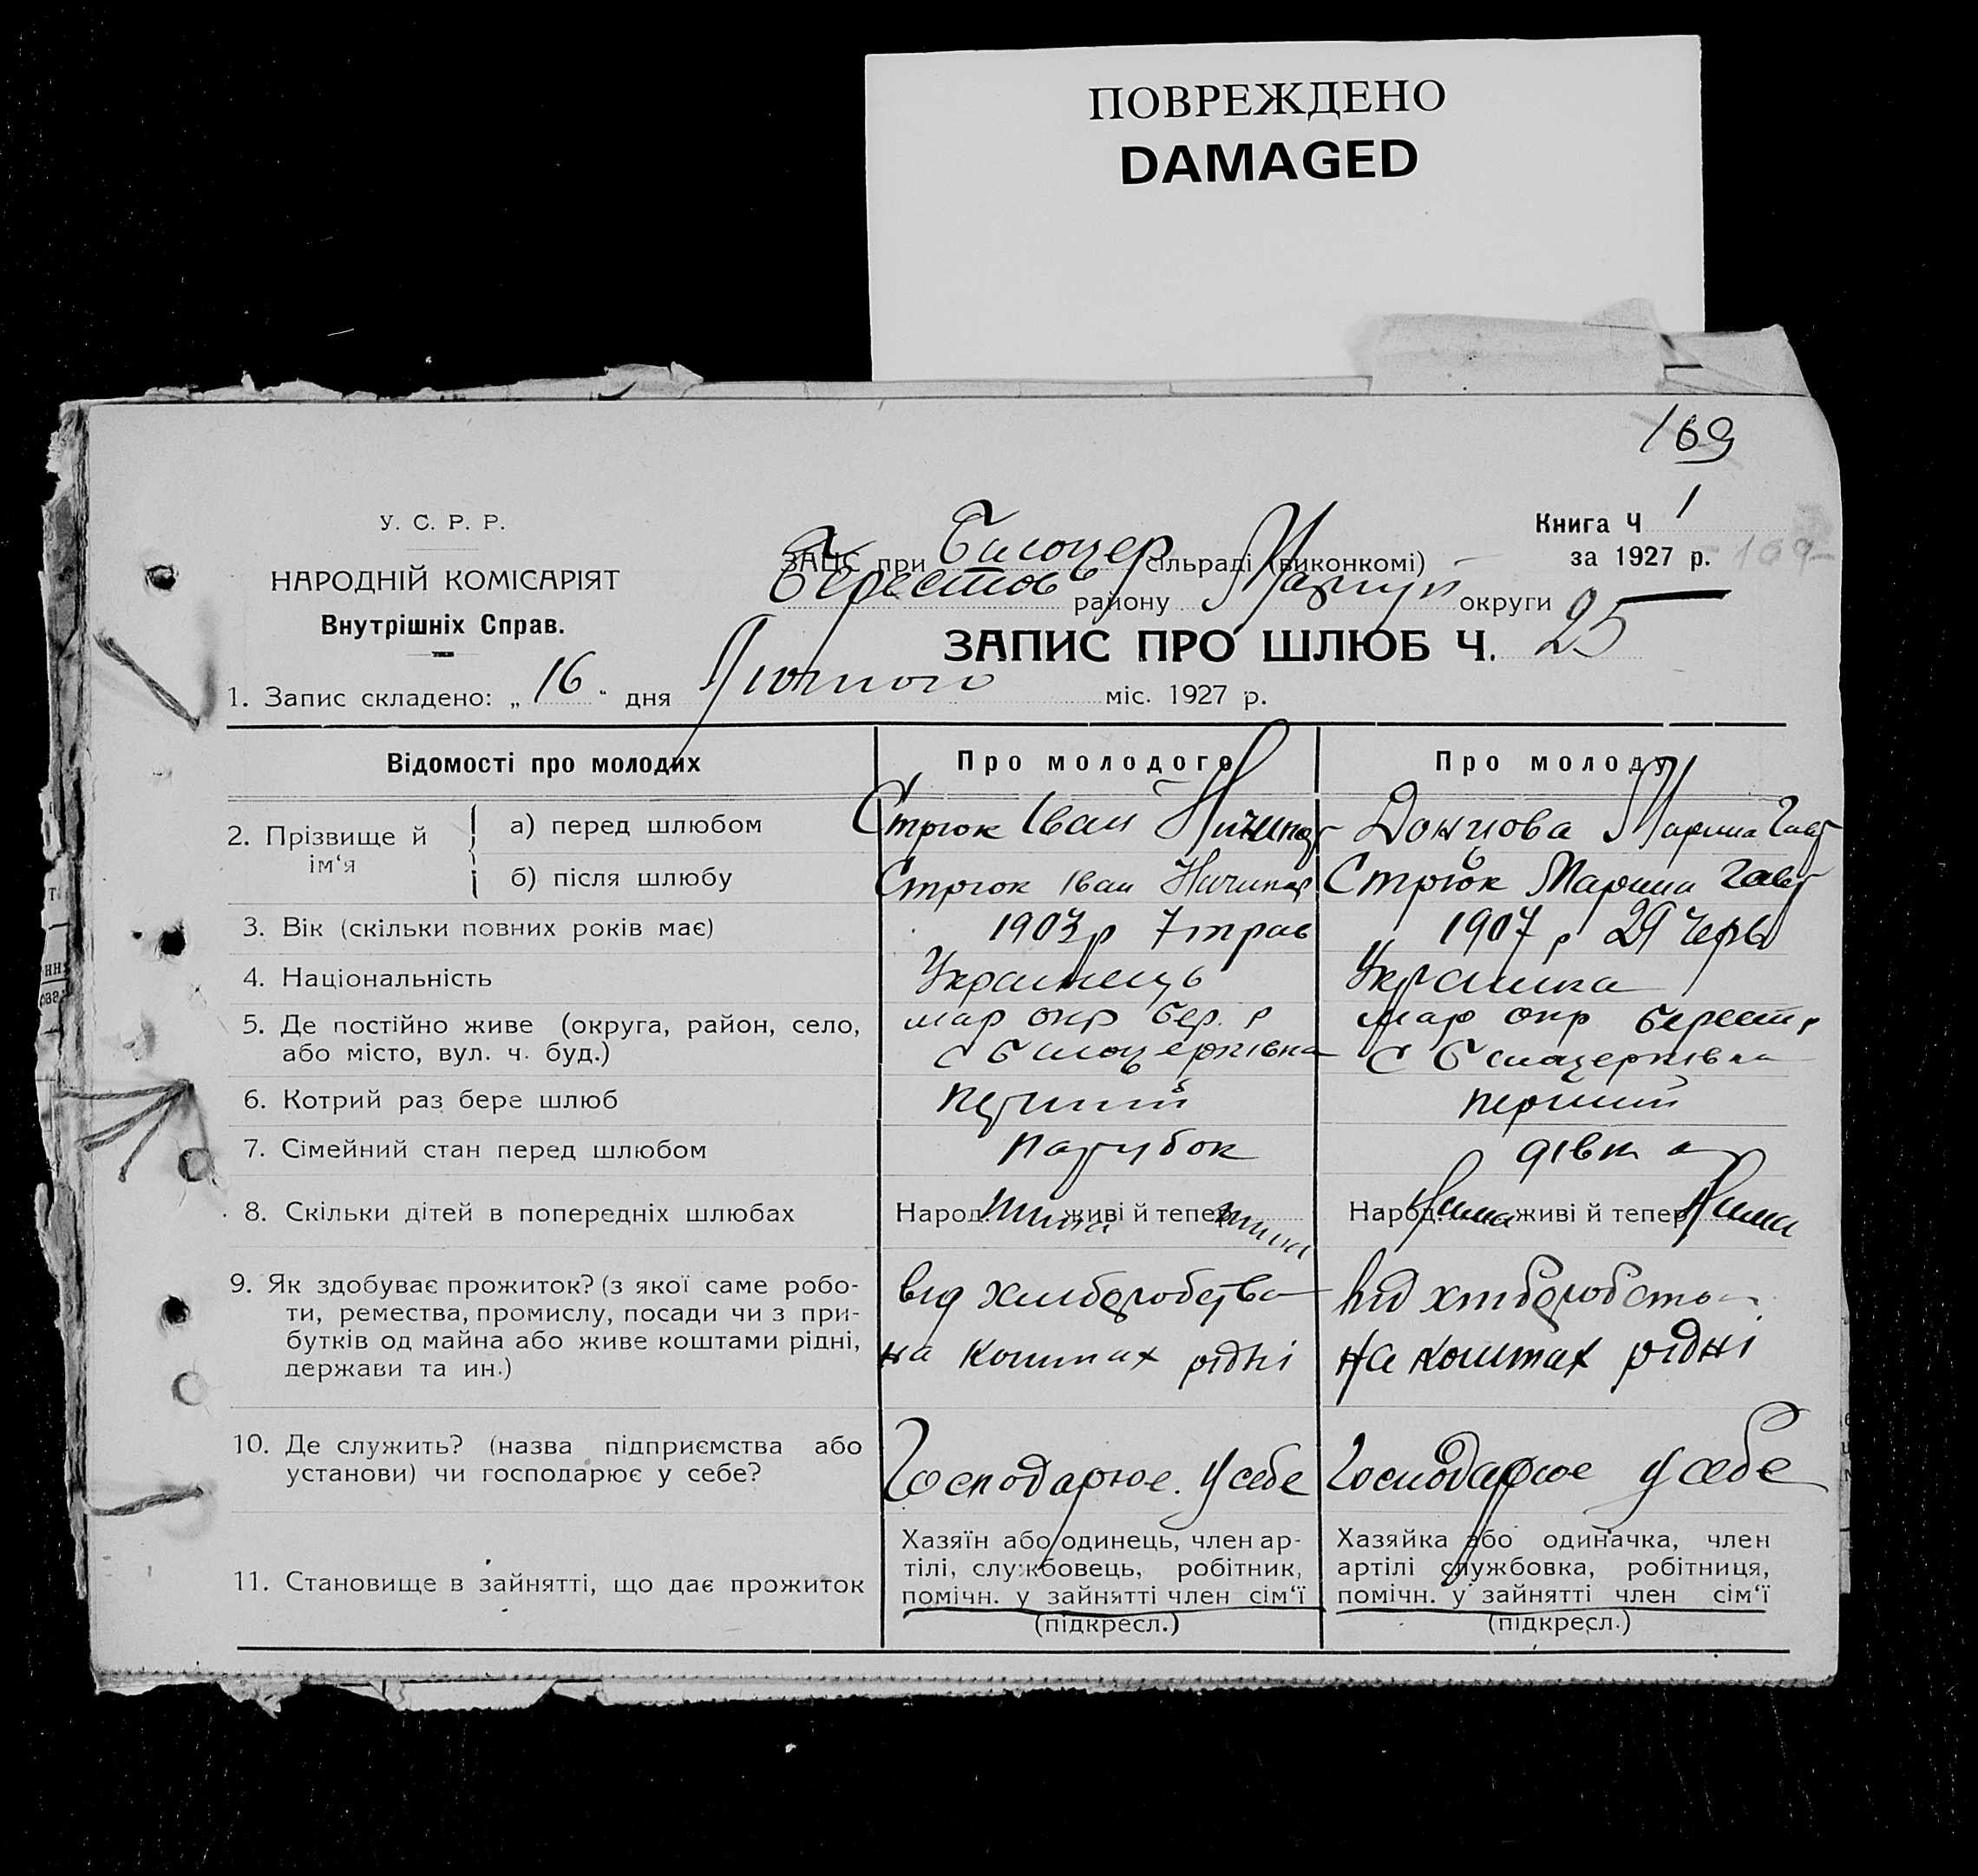 ПОВРЕЖДЕНО
DAMAGED
169
У. С. Р. Р.
НАРОДНІЙ КОМІСАРІЯТ
Внутрішніх Справ.
Книга Ч 1
за 1927 р. 169
ЗАЦС при Билоцер сільраді (виконкомі)
Берестов району Маріуп округи
ЗАПИС ПРО ШЛЮБ Ч. 25
1. Запис складено: „ 16 " дня Лютого міс. 1927 р.
Відомості про молодих Про молодого Про молоду
2. Прізвище й ім‘я
а) перед шлюбом Стрюк Іван Ничипор Донцова Марина Гавр
б) після шлюбу Стрюк Іван Ничипор Стрюк Марина Гавр
3. Вік (скільки повних років має) 1903 р 7 трав 1907 р 29 Черв
4. Національність Украінець Украинка
5. Де постійно живе (округа, район, село, мар окр Бер. р мар окр Берест р
або місто, вул. ч. буд.) С Билоцерківка С Билацерківка
6. Котрий раз бере шлюб перший перший
7. Сімейний стан перед шлюбом парубок дівка
8. Скільки дітей в попередніх шлюбах Народ. живі й тепер Народ. Нима живі й тепер Нима
9. Як здобуває прожиток? (з якої саме робо-
ти, ремества, промислу, посади чи з при-
бутків од майна або живе коштами рідні,
держави та ин.)
від хлиборобства
на коштах рідні
від хлиборобства
на коштах рідні
10. Де служить? (назва підприємства або
установи) чи господарює у себе?
Господарює. у себе Господарює у себе
11. Становище в зайнятті, що дає прожиток
Хазяїн або одинець, член ар-
тілі, службовець, робітник,
помічн. у зайнятті член сім‘ї
(підкресл.)
Хазяйка або одиначка, член
артілі службовка, робітниця,
помічн. у зайнятті член сім‘ї
(підкресл.)